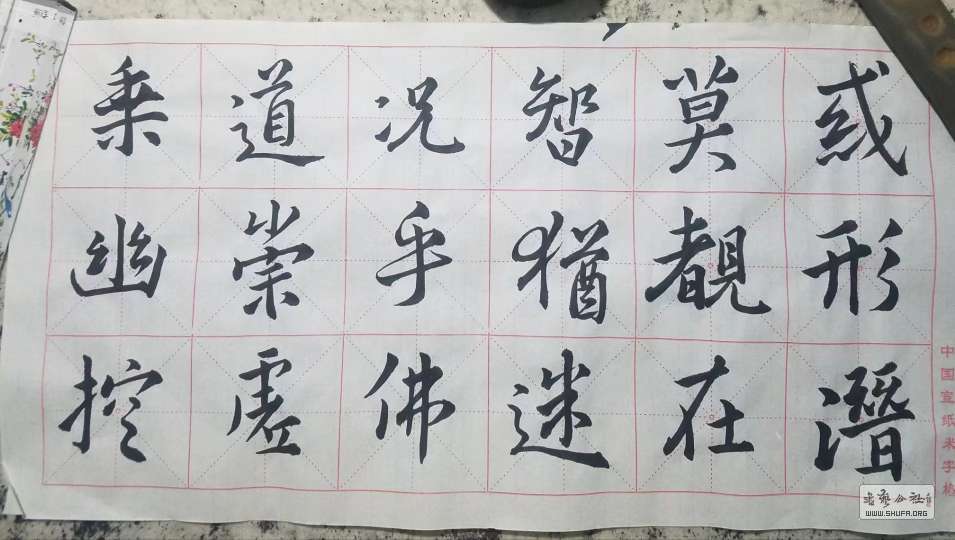 惑形潛
莫覩在
智猶迷
况乎佛
道崇虚
乗幽控
中国宣纸米字格
书艺公社
WWW.SHUFA.ORG